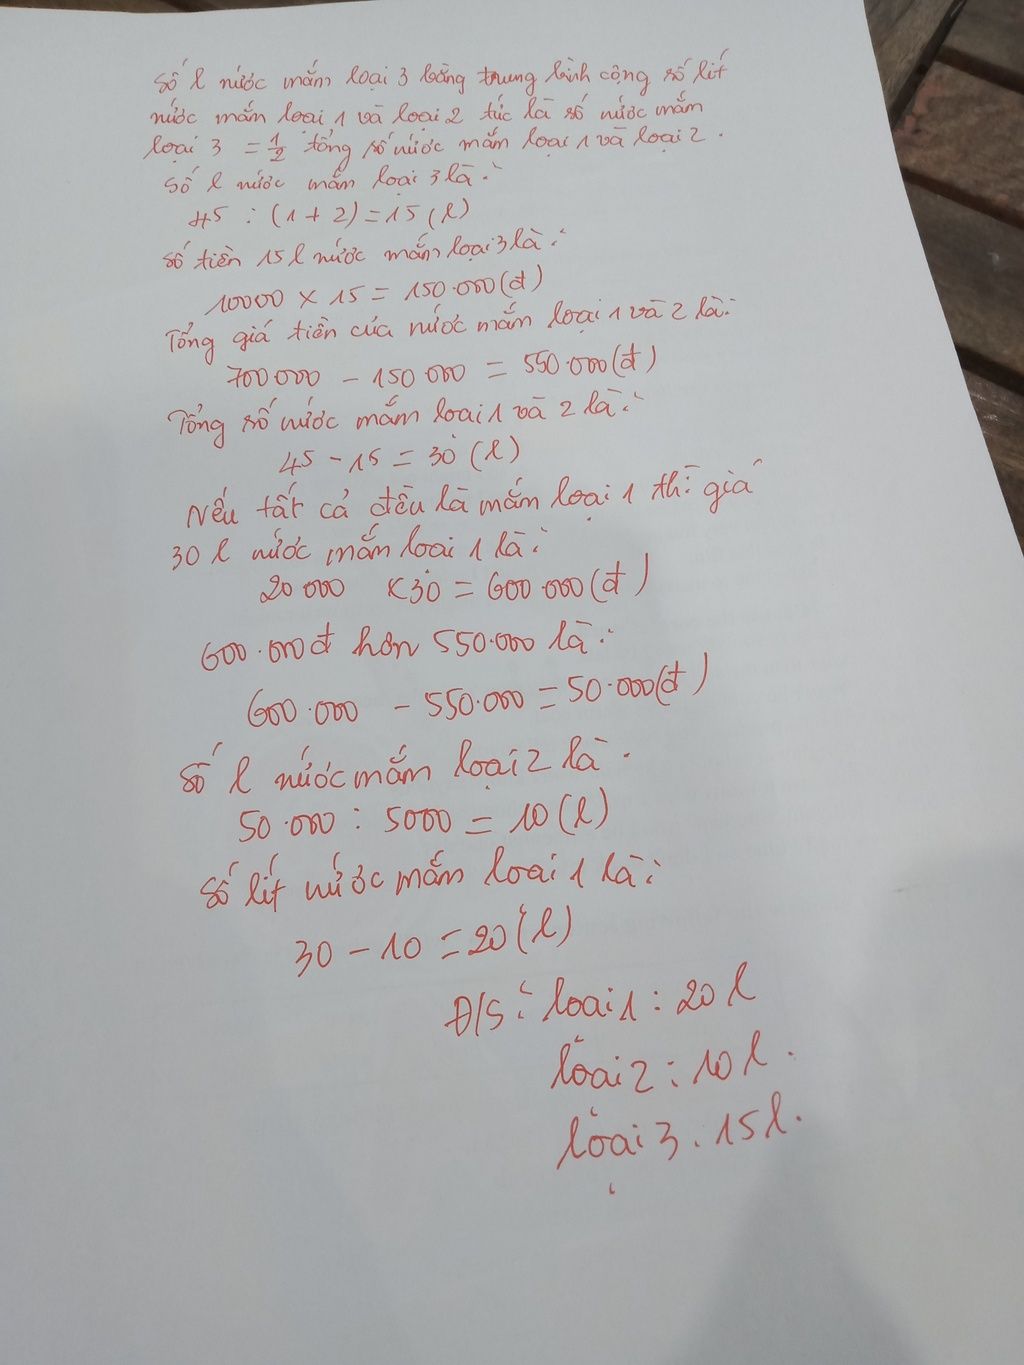 Số l nước mắm loại 3 bằng trung bình cộng số lít
nước mắm loại 1 và loại 2 tức là số nước mắm
loại 3 = 1/2 tổng số nước mắm loại 1 và loại 2.
Số l nước mắm loại 3 là:
45 : (1 + 2) = 15 (l)
Số tiền 15 l nước mắm loại 3 là:
10000 × 15 = 150.000 (đ)
Tổng giá tiền của nước mắm loại 1 và 2 là:
700 000 - 150 000 = 550.000 (đ)
Tổng số nước mắm loại 1 và 2 là:
45 - 15 = 30 (l)
Nếu tất cả đều là mắm loại 1 thì giá
30 l nước mắm loại 1 là:
20 000 × 30 = 600.000 (đ)
600.000đ hơn 550.000 là:
600.000 - 550.000 = 50.000 (đ)
Số l nước mắm loại 2 là.
50.000 : 5000 = 10 (l)
Số lít nước mắm loại 1 là:
30 - 10 = 20 (l)
Đ/S: loại 1 : 20 l
loại 2 : 10 l.
loại 3 . 15 l.